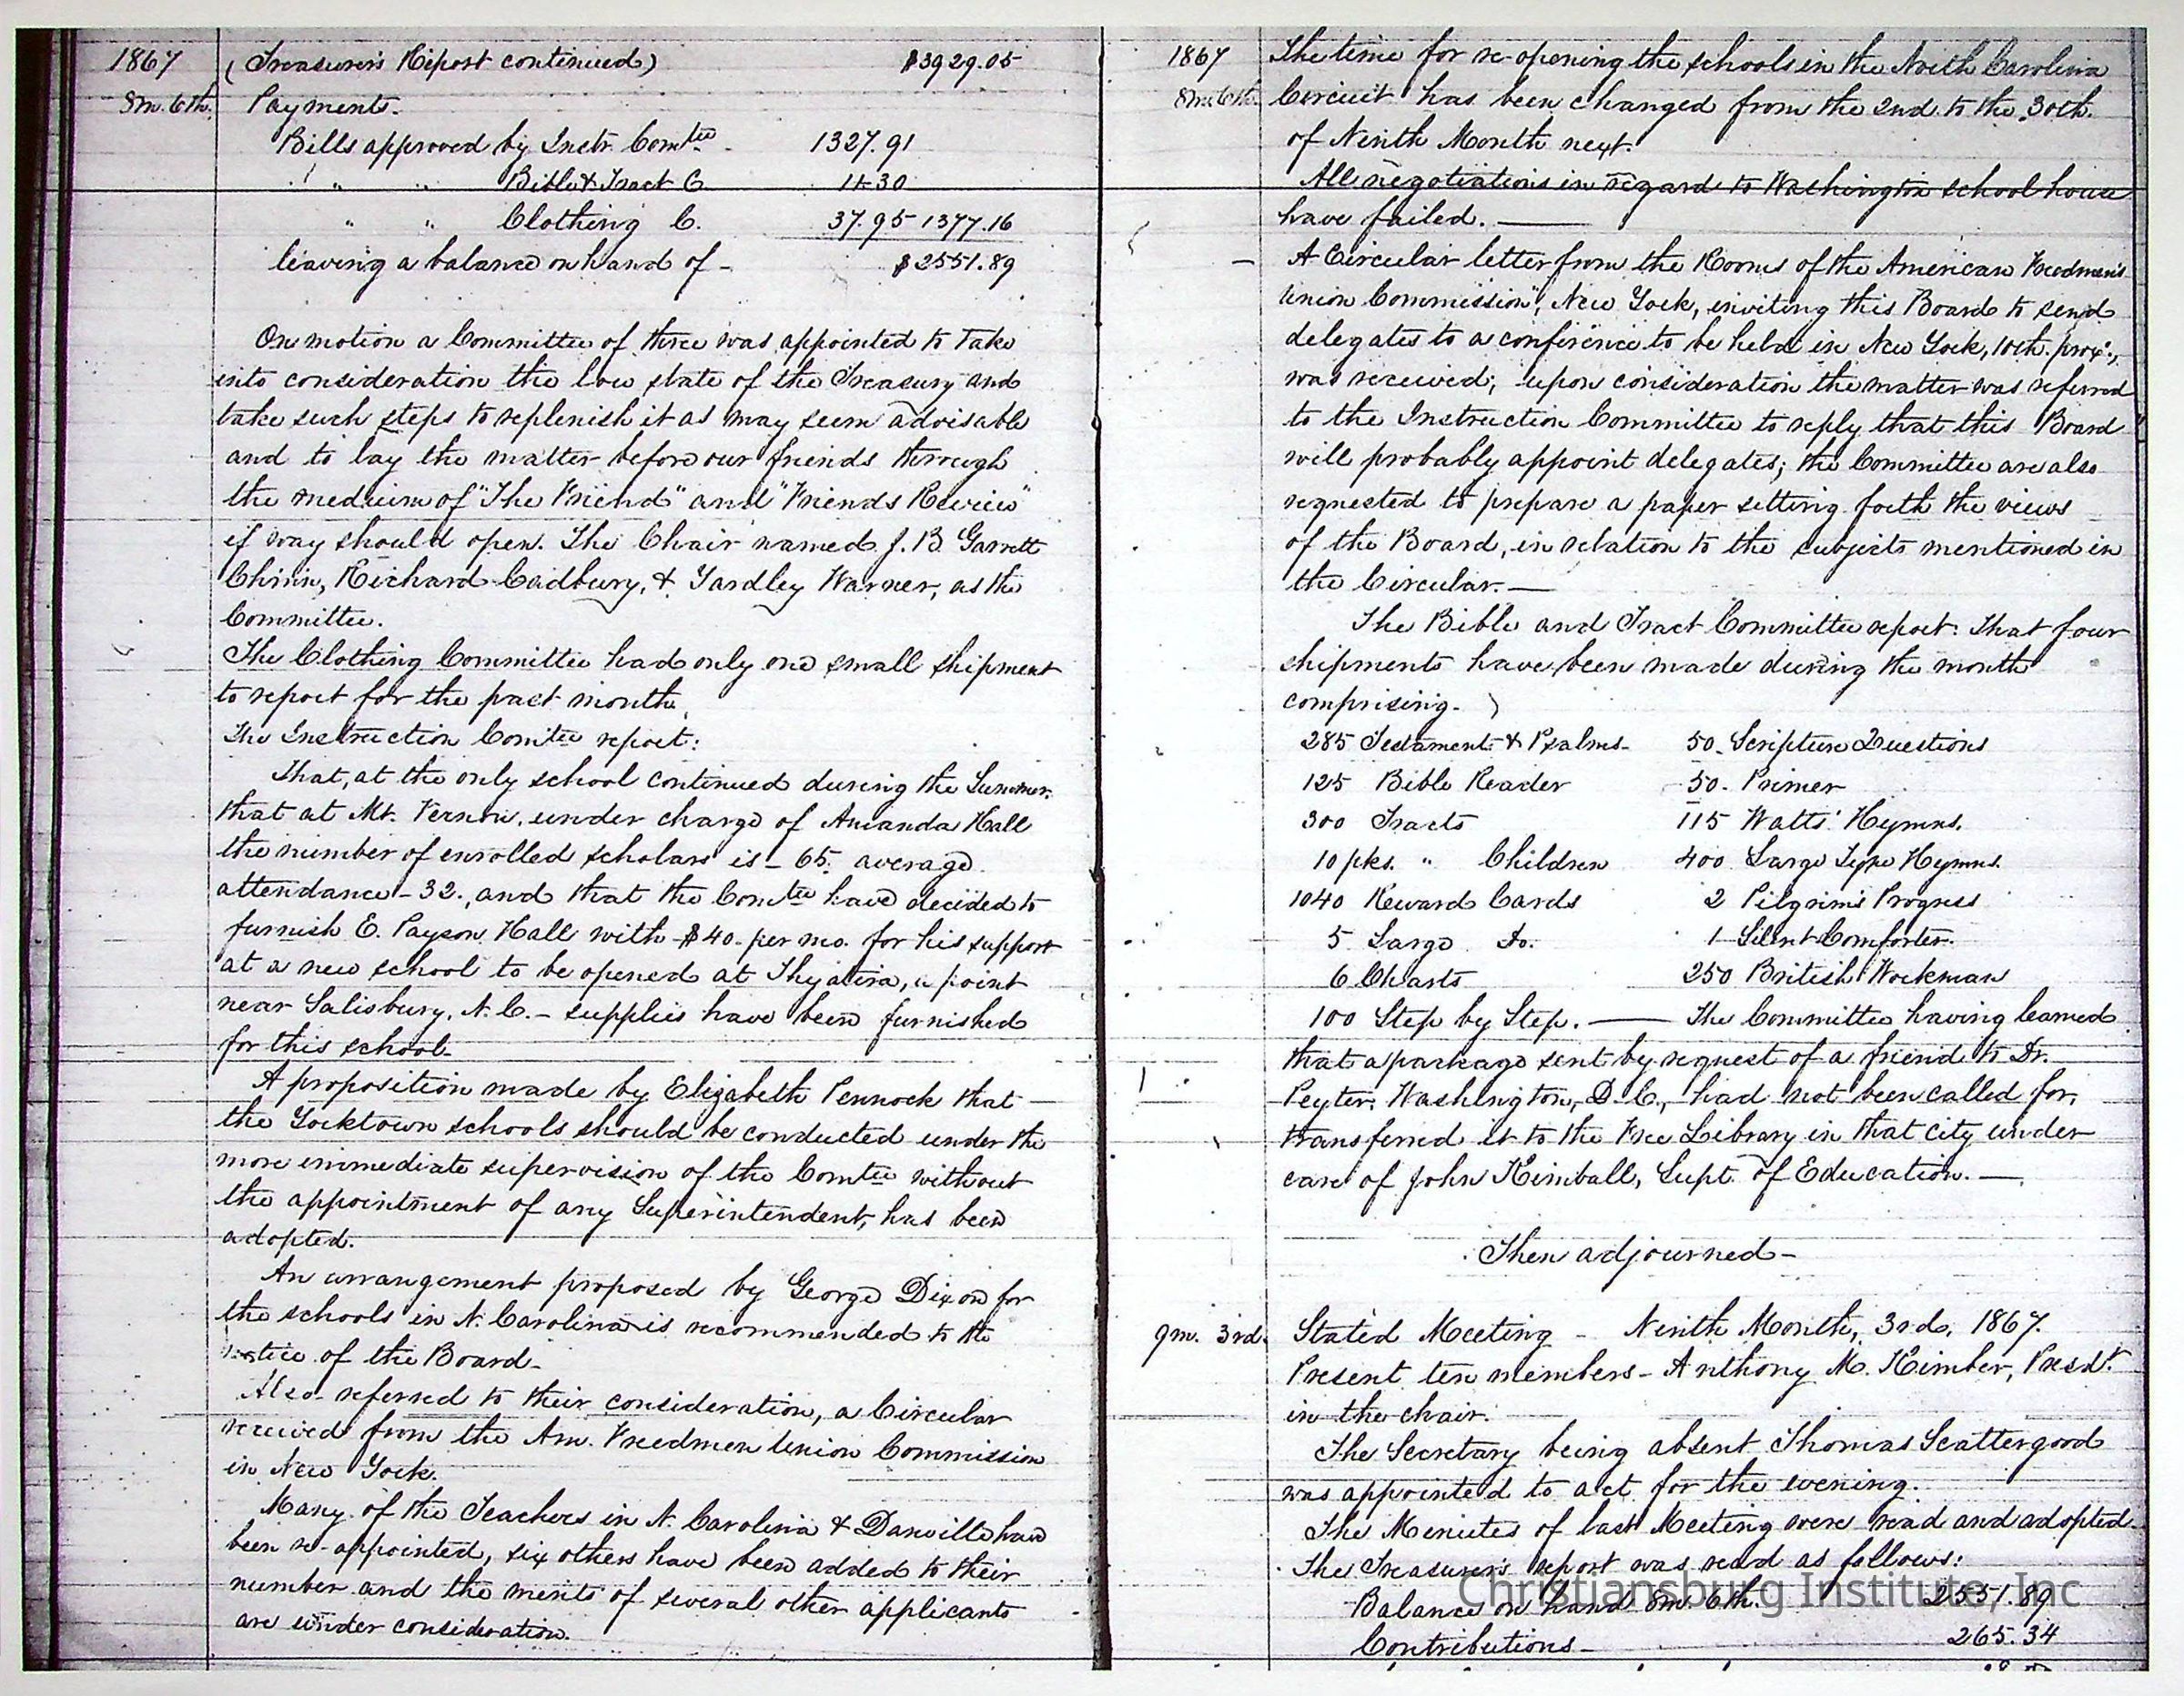 1867 (Treasurer's Report continued) $3929.05
8m. 6th. Payments.
Bills approved by Instr. Comtee 1327.91
" " Bible & Tract C. 11.30
" " Clothing C. 37.95 1377.16
leaving a balance on hand of - $2551.89
On motion a Committee of three was appointed to take
into consideration the low state of the Treasury and
take such steps to replenish it as may seem advisable
and to lay the matter before our friends through
the medium of "The Friend" and "Friends Review"
if way should open. The Chair named J. B. Garrett
Chmn, Richard Cadbury, & Yardley Warner, as the
Committee.
The Clothing Committee had only one small shipment
to report for the past month.
The Instruction Comtee report:
That, at the only school continued during the Summer,
that at Mt. Vernon, under charge of Amanda Hall
the number of enrolled scholars is - 65. average
attendance - 32., and that the Comtee have decided to
furnish E. Payson Hall with $40. per mo. for his support
at a new school to be opened at Thyatira, a point
near Salisbury, N.C. - supplies have been furnished
for this school.
A proposition made by Elizabeth Pennock that
the Yorktown schools should be conducted under the
more immediate supervision of the Comtee without
the appointment of any Superintendent, has been
adopted.
An arrangement proposed by George Dixon for
the schools in N. Carolina is recommended to the
notice of the Board.
Also referred to their consideration, a Circular
received from the Am. Freedmen Union Commission
in New York.
Many of the Teachers in N. Carolina & Danville have
been re-appointed, six others have been added to their
number and the merits of several other applicants
are under consideration.
1867 The time for re-opening the schools in the North Carolina
8m. 6th. Circuit has been changed from the 2nd to the 30th.
of Ninth Month next.
All negotiations in regard to Washington school house
have failed.
A Circular letter from the Rooms of the American Freedmen's
Union Commission", New York, inviting this Board to send
delegates to a conference to be held in New York, 10th. prox:,
was received; upon consideration the matter was referred
to the Instruction Committee to reply that this Board
will probably appoint delegates; the Committee are also
requested to prepare a paper setting forth the views
of the Board, in relation to the subjects mentioned in
the Circular.
The Bible and Tract Committee report: That four
shipments have been made during the month
comprising.
285 Testaments & Psalms - 50 - Scripture Questions
125 Bible Reader 50 - Primer
300 Tracts 115 Watts' Hymns.
10 pks. " Children 400 Large Type Hymns.
1040 Reward Cards 2 Pilgrim's Progress
5 Large Do. 1 Silent Comforter.
6 Charts 250 British Workman
100 Step by Step. The Committee having learned
that a package sent by request of a friend to Dr.
Peyter, Washington, D.C., had not been called for,
transferred it to the Free Library in that city under
care of John Kimball, Supt. of Education.
Then adjourned -
9m. 3rd. Stated Meeting - Ninth Month, 3rd, 1867.
Present ten members - Anthony M. Kimber, Presdt.
in the chair.
The Secretary being absent Thomas Scattergood
was appointed to act for the evening.
The Minutes of last Meeting were read and adopted.
The Treasurer's report was read as follows:
Balance on hand 8m. 6th. 2551.89
Contributions - 265.34
Christiansburg Institute, Inc